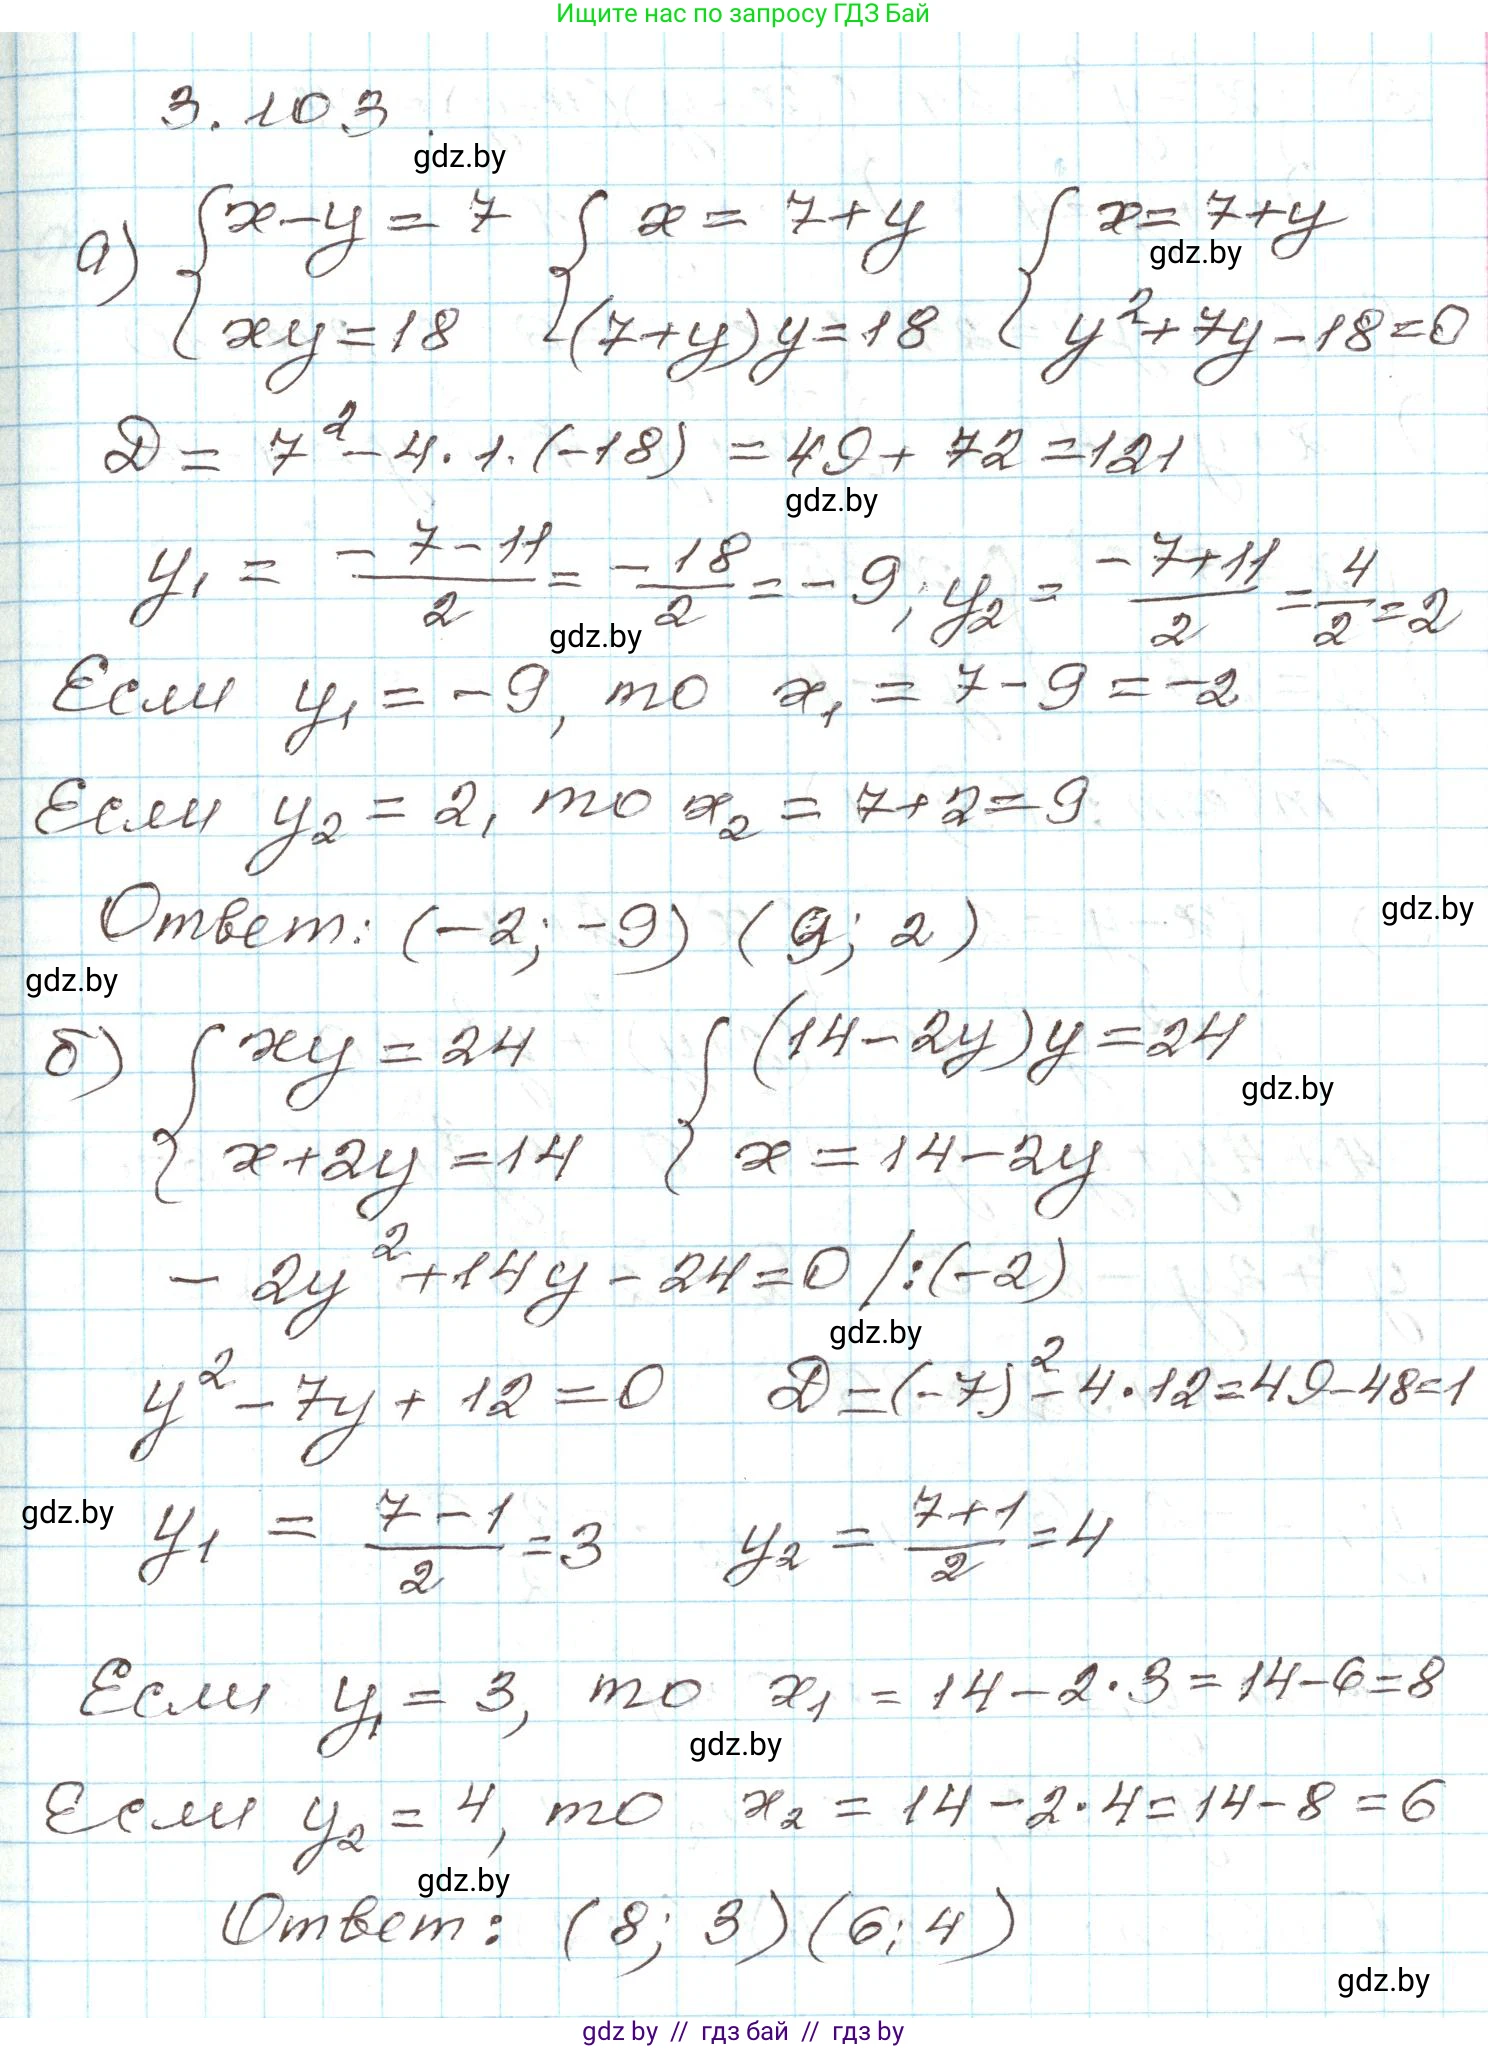 Ищите нас по запросу ГДЗ Бай
3.103.
gdz.by
а) { x-y=7 { x=7+y { x=7+y
gdz.by
xy=18 (7+y)y=18 y²+7y-18=0
D=7²-4·1·(-18)=49+72=121
gdz.by
y₁ = (-7-11)/2 = -18/2 = -9; y₂ = (-7+11)/2 = 4/2 = 2
gdz.by
Если y₁=-9, то x₁=7-9=-2
Если y₂=2, то x₂=7+2=9
Ответ: (-2; -9) (9; 2)
gdz.by
gdz.by
б) { xy=24 { (14-2y)y=24
gdz.by
x+2y=14 x=14-2y
-2y²+14y-24=0 /:(-2)
gdz.by
y²-7y+12=0 D=(-7)²-4·12=49-48=1
gdz.by
y₁ = (7-1)/2 = 3 y₂ = (7+1)/2 = 4
Если y₁=3, то x₁=14-2·3=14-6=8
gdz.by
Если y₂=4, то x₂=14-2·4=14-8=6
gdz.by
Ответ: (8; 3) (6; 4)
gdz.by
gdz by // гдз бай // гдз by